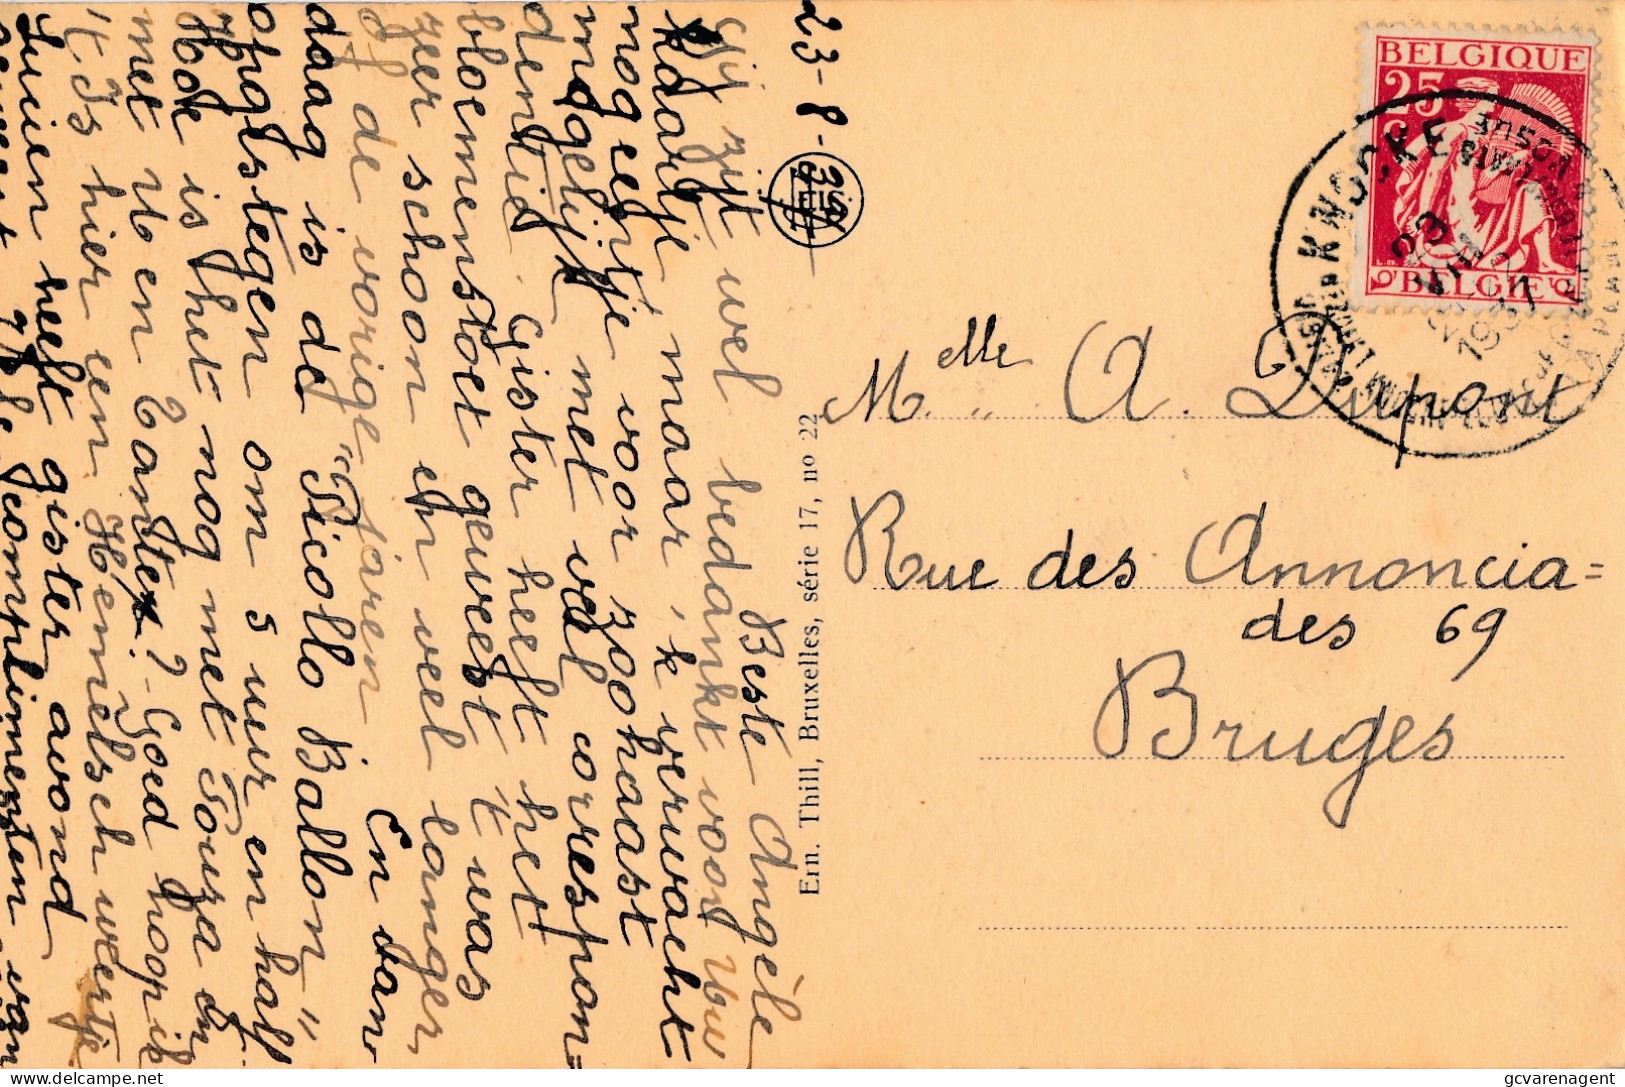 23-8-34
Beste Angèle
Gij zijt wel bedankt voor Uw
kaartje, maar 'k verwacht
nog eentje voor zoohaast
mogelijk met veel correspon=
dentie. Gister heeft het
bloemenstoet geweest 't was
zeer schoon en veel langer
of de vorige jaren. En van
daag is de "Picollo Ballon"
opgestegen om 5 uur en half.
Hoe is het nog met Touza en
met U en Tante? Goed hoop ik
't Is hier een Hemelsch weertje
Lucien heeft gister avond
geweest. Vele complimenten van
En. Thill, Bruxelles, série 17, no 22
BELGIQUE
25
C
BELGIË
KNOCKE
23
VIII
1934
Melle A. Dupont
Rue des Annoncia=
des 69
Bruges
gcvarenagent